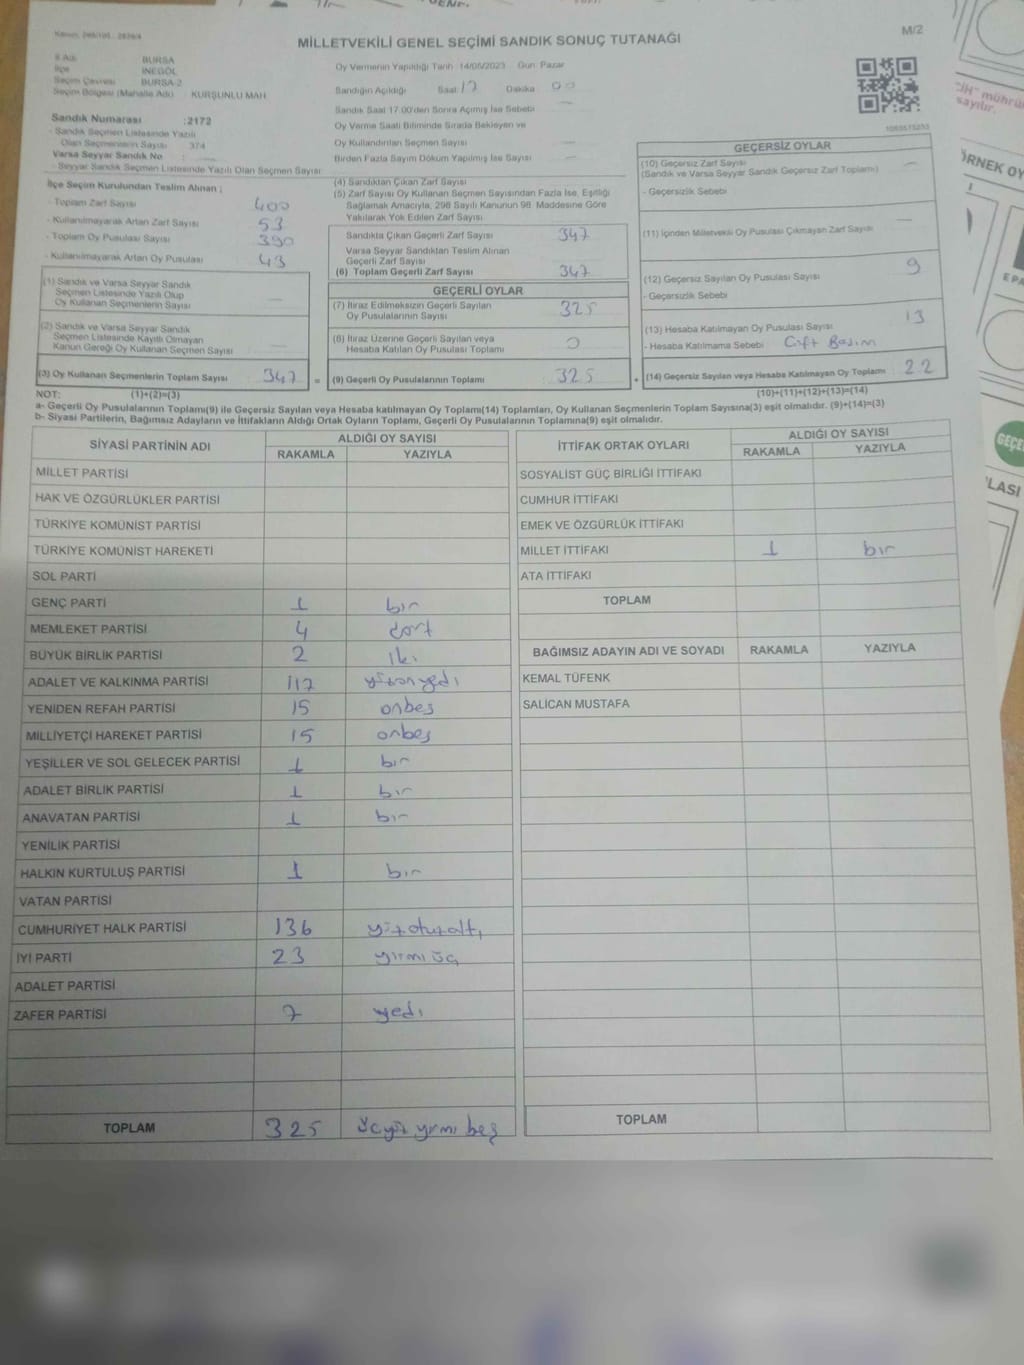 M/2
MİLLETVEKİLİ GENEL SEÇİMİ SANDIK SONUÇ TUTANAĞI
İl Adı BURSA
İlçe İNEGÖL
Seçim Çevresi BURSA-2
Seçim Bölgesi (Mahalle Adı) KURŞUNLU MAH
Sandık Numarası :2172
- Sandık Seçmen Listesinde Yazılı
Olan Seçmenlerin Sayısı 374
Varsa Seyyar Sandık No
- Seyyar Sandık Seçmen Listesinde Yazılı Olan Seçmen Sayısı
Oy Vermenin Yapıldığı Tarih 14/05/2023 Gün Pazar
Sandığın Açıldığı Saat 17 Dakika 00
Sandık Saat 17.00'den Sonra Açılmış İse Sebebi
Oy Verme Saati Bitiminde Sırada Bekleyen ve
Oy Kullandırılan Seçmen Sayısı
Birden Fazla Sayım Döküm Yapılmış İse Sayısı
İlçe Seçim Kurulundan Teslim Alınan ;
- Toplam Zarf Sayısı 400
- Kullanılmayarak Artan Zarf Sayısı 53
- Toplam Oy Pusulası Sayısı 390
- Kullanılmayarak Artan Oy Pusulası 43
(1) Sandık ve Varsa Seyyar Sandık
Seçmen Listesinde Yazılı Olup
Oy Kullanan Seçmenlerin Sayısı
(2) Sandık ve Varsa Seyyar Sandık
Seçmen Listesinde Kayıtlı Olmayan
Kanun Gereği Oy Kullanan Seçmen Sayısı
(3) Oy Kullanan Seçmenlerin Toplam Sayısı 347 =
(4) Sandıktan Çıkan Zarf Sayısı
(5) Zarf Sayısı Oy Kullanan Seçmen Sayısından Fazla İse, Eşitliği
Sağlamak Amacıyla, 298 Sayılı Kanunun 98. Maddesine Göre
Yakılarak Yok Edilen Zarf Sayısı
Sandıkta Çıkan Geçerli Zarf Sayısı 347
Varsa Seyyar Sandıktan Teslim Alınan
Geçerli Zarf Sayısı
(6) Toplam Geçerli Zarf Sayısı 347
GEÇERLİ OYLAR
(7) İtiraz Edilmeksizin Geçerli Sayılan
Oy Pusulalarının Sayısı 325
(8) İtiraz Üzerine Geçerli Sayılan veya
Hesaba Katılan Oy Pusulası Toplamı 0
(9) Geçerli Oy Pusulalarının Toplamı 325 +
GEÇERSİZ OYLAR
(10) Geçersiz Zarf Sayısı
(Sandık ve Varsa Seyyar Sandık Geçersiz Zarf Toplamı)
- Geçersizlik Sebebi
(11) İçinden Milletvekili Oy Pusulası Çıkmayan Zarf Sayısı
(12) Geçersiz Sayılan Oy Pusulası Sayısı 9
- Geçersizlik Sebebi
(13) Hesaba Katılmayan Oy Pusulası Sayısı 13
- Hesaba Katılmama Sebebi Çift Basım
(14) Geçersiz Sayılan veya Hesaba Katılmayan Oy Toplamı 22
NOT: (1)+(2)=(3) (10)+(11)+(12)+(13)=(14)
a- Geçerli Oy Pusulalarının Toplamı(9) ile Geçersiz Sayılan veya Hesaba katılmayan Oy Toplamı(14) Toplamları, Oy Kullanan Seçmenlerin Toplam Sayısına(3) eşit olmalıdır. (9)+(14)=(3)
b- Siyasi Partilerin, Bağımsız Adayların ve İttifakların Aldığı Ortak Oyların Toplamı, Geçerli Oy Pusulalarının Toplamına(9) eşit olmalıdır.
SİYASİ PARTİNİN ADI ALDIĞI OY SAYISI
RAKAMLA YAZIYLA
MİLLET PARTİSİ
HAK VE ÖZGÜRLÜKLER PARTİSİ
TÜRKİYE KOMÜNİST PARTİSİ
TÜRKİYE KOMÜNİST HAREKETİ
SOL PARTİ
GENÇ PARTİ 1 bir
MEMLEKET PARTİSİ 4 dört
BÜYÜK BİRLİK PARTİSİ 2 iki
ADALET VE KALKINMA PARTİSİ 117 yüzonyedi
YENİDEN REFAH PARTİSİ 15 onbeş
MİLLİYETÇİ HAREKET PARTİSİ 15 onbeş
YEŞİLLER VE SOL GELECEK PARTİSİ 1 bir
ADALET BİRLİK PARTİSİ 1 bir
ANAVATAN PARTİSİ 1 bir
YENİLİK PARTİSİ
HALKIN KURTULUŞ PARTİSİ 1 bir
VATAN PARTİSİ
CUMHURİYET HALK PARTİSİ 136 yüzotuzaltı
İYİ PARTİ 23 yirmi üç
ADALET PARTİSİ
ZAFER PARTİSİ 7 yedi
TOPLAM 325 üçyüz yirmi beş
İTTİFAK ORTAK OYLARI ALDIĞI OY SAYISI
RAKAMLA YAZIYLA
SOSYALİST GÜÇ BİRLİĞİ İTTİFAKI
CUMHUR İTTİFAKI
EMEK VE ÖZGÜRLÜK İTTİFAKI
MİLLET İTTİFAKI 1 bir
ATA İTTİFAKI
TOPLAM
BAĞIMSIZ ADAYIN ADI VE SOYADI RAKAMLA YAZIYLA
KEMAL TÜFENK
SALİCAN MUSTAFA
TOPLAM
mührü
sayılır.
ÖRNEK OY
GEÇE
LASI